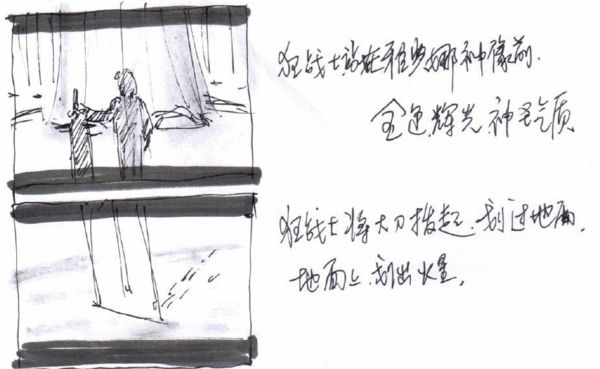 狂战士站在雅典娜神像前.
金色辉光神圣气质
狂战士将大刀拔起.划过地面.
地面上.划出火星.